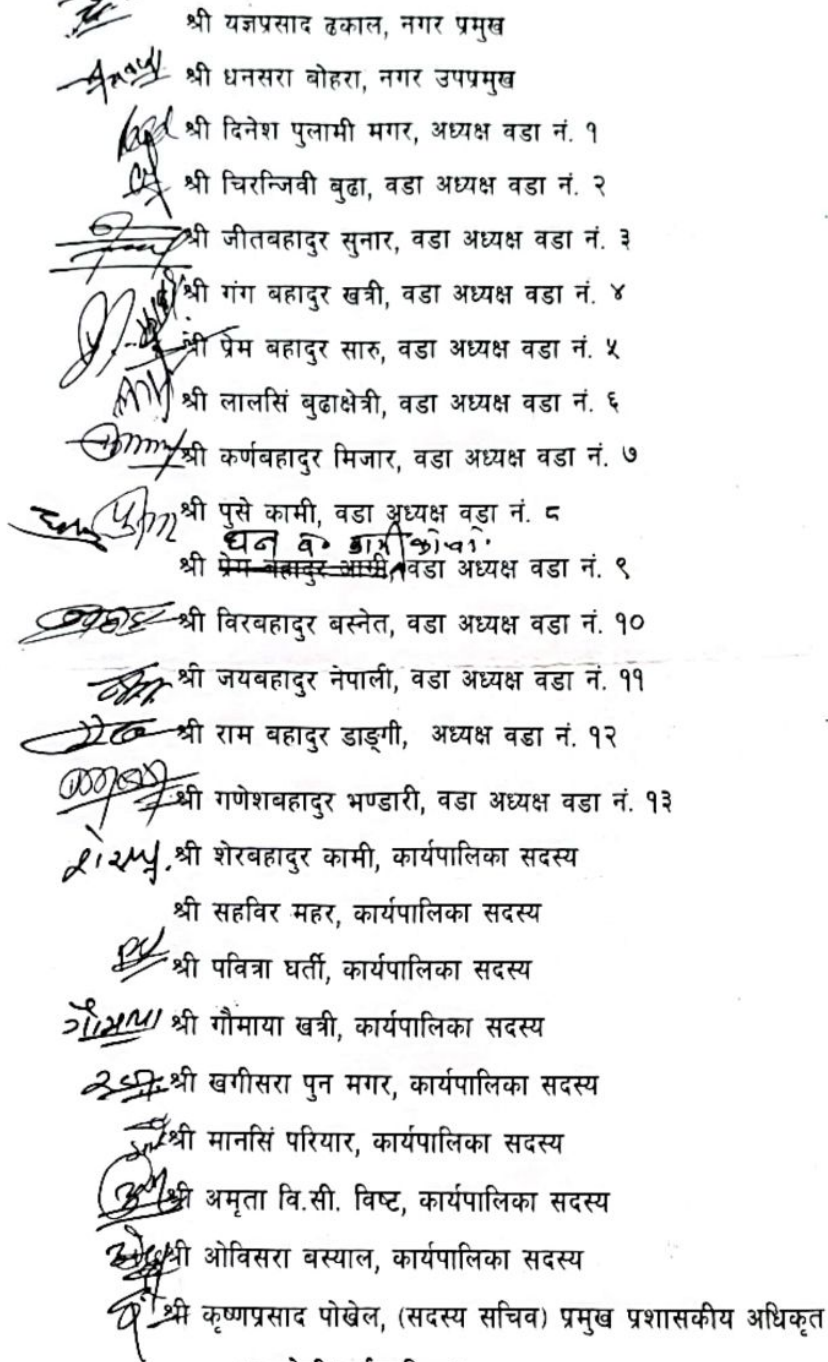 श्री यज्ञप्रसाद ढकाल, नगर प्रमुख
श्री धनसरा बोहरा, नगर उपप्रमुख
श्री दिनेश पुलामी मगर, अध्यक्ष वडा नं. १
श्री चिरन्जिवी बुढा, वडा अध्यक्ष वडा नं. २
श्री जीतबहादुर सुनार, वडा अध्यक्ष वडा नं. ३
श्री गंग बहादुर खत्री, वडा अध्यक्ष वडा नं. ४
श्री प्रेम बहादुर सारु, वडा अध्यक्ष वडा नं. ५
श्री लालसिं बुढाक्षेत्री, वडा अध्यक्ष वडा नं. ६
श्री कर्णबहादुर मिजार, वडा अध्यक्ष वडा नं. ७
श्री पुसे कामी, वडा अध्यक्ष वडा नं. ८
धन व.
श्री वडा अध्यक्ष वडा नं. ९
श्री विरबहादुर बस्नेत, वडा अध्यक्ष वडा नं. १०
श्री जयबहादुर नेपाली, वडा अध्यक्ष वडा नं. ११
श्री राम बहादुर डाङ्गी, अध्यक्ष वडा नं. १२
श्री गणेशबहादुर भण्डारी, वडा अध्यक्ष वडा नं. १३
श्री शेरबहादुर कामी, कार्यपालिका सदस्य
श्री सहविर महर, कार्यपालिका सदस्य
श्री पवित्रा घर्ती, कार्यपालिका सदस्य
गौमाया श्री गौमाया खत्री, कार्यपालिका सदस्य
श्री खगीसरा पुन मगर, कार्यपालिका सदस्य
श्री मानसिं परियार, कार्यपालिका सदस्य
श्री अमृता वि.सी. विष्ट, कार्यपालिका सदस्य
श्री ओविसरा बस्याल, कार्यपालिका सदस्य
श्री कृष्णप्रसाद पोखेल, (सदस्य सचिव) प्रमुख प्रशासकीय अधिकृत